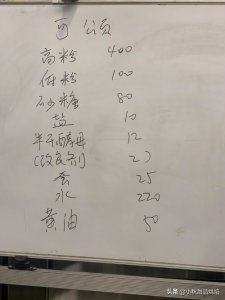 可 公克
高粉 400
低粉 100
砂糖 80
盐 10
半干酵母 12
(改良剂) 2
蛋 25
水 220
黄油 50
头条 @小耿甜品烘焙